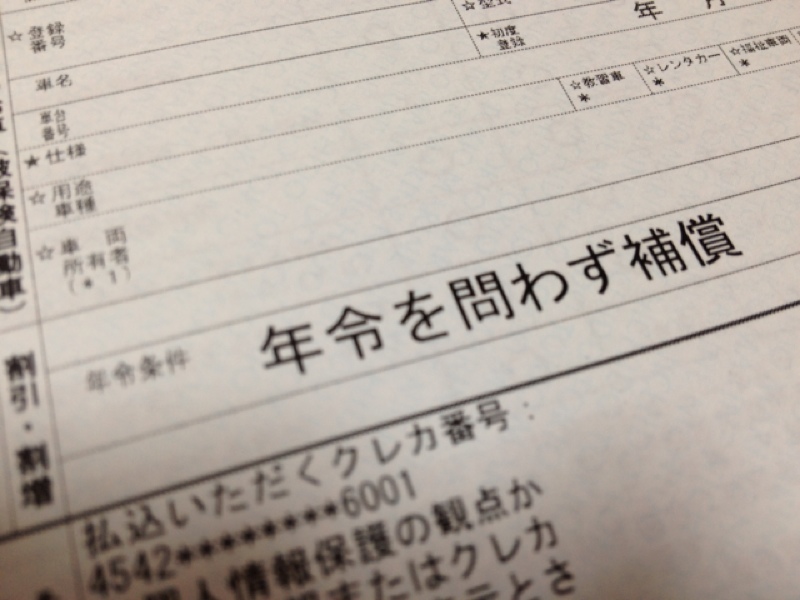 ☆型式
☆登録
番号
★初度
登録
年 月
車名
☆教習車
*
☆レンタカー
*
☆福祉車両
*
車台
番号
★仕様
☆用途
車種
☆車 両
所有者
(*1)
被保険自動車)
年令条件
年令を問わず補償
割引・割増
払込いただくクレカ番号:
4542********6001
個人情報保護の観点か
またはクレカ
とさ